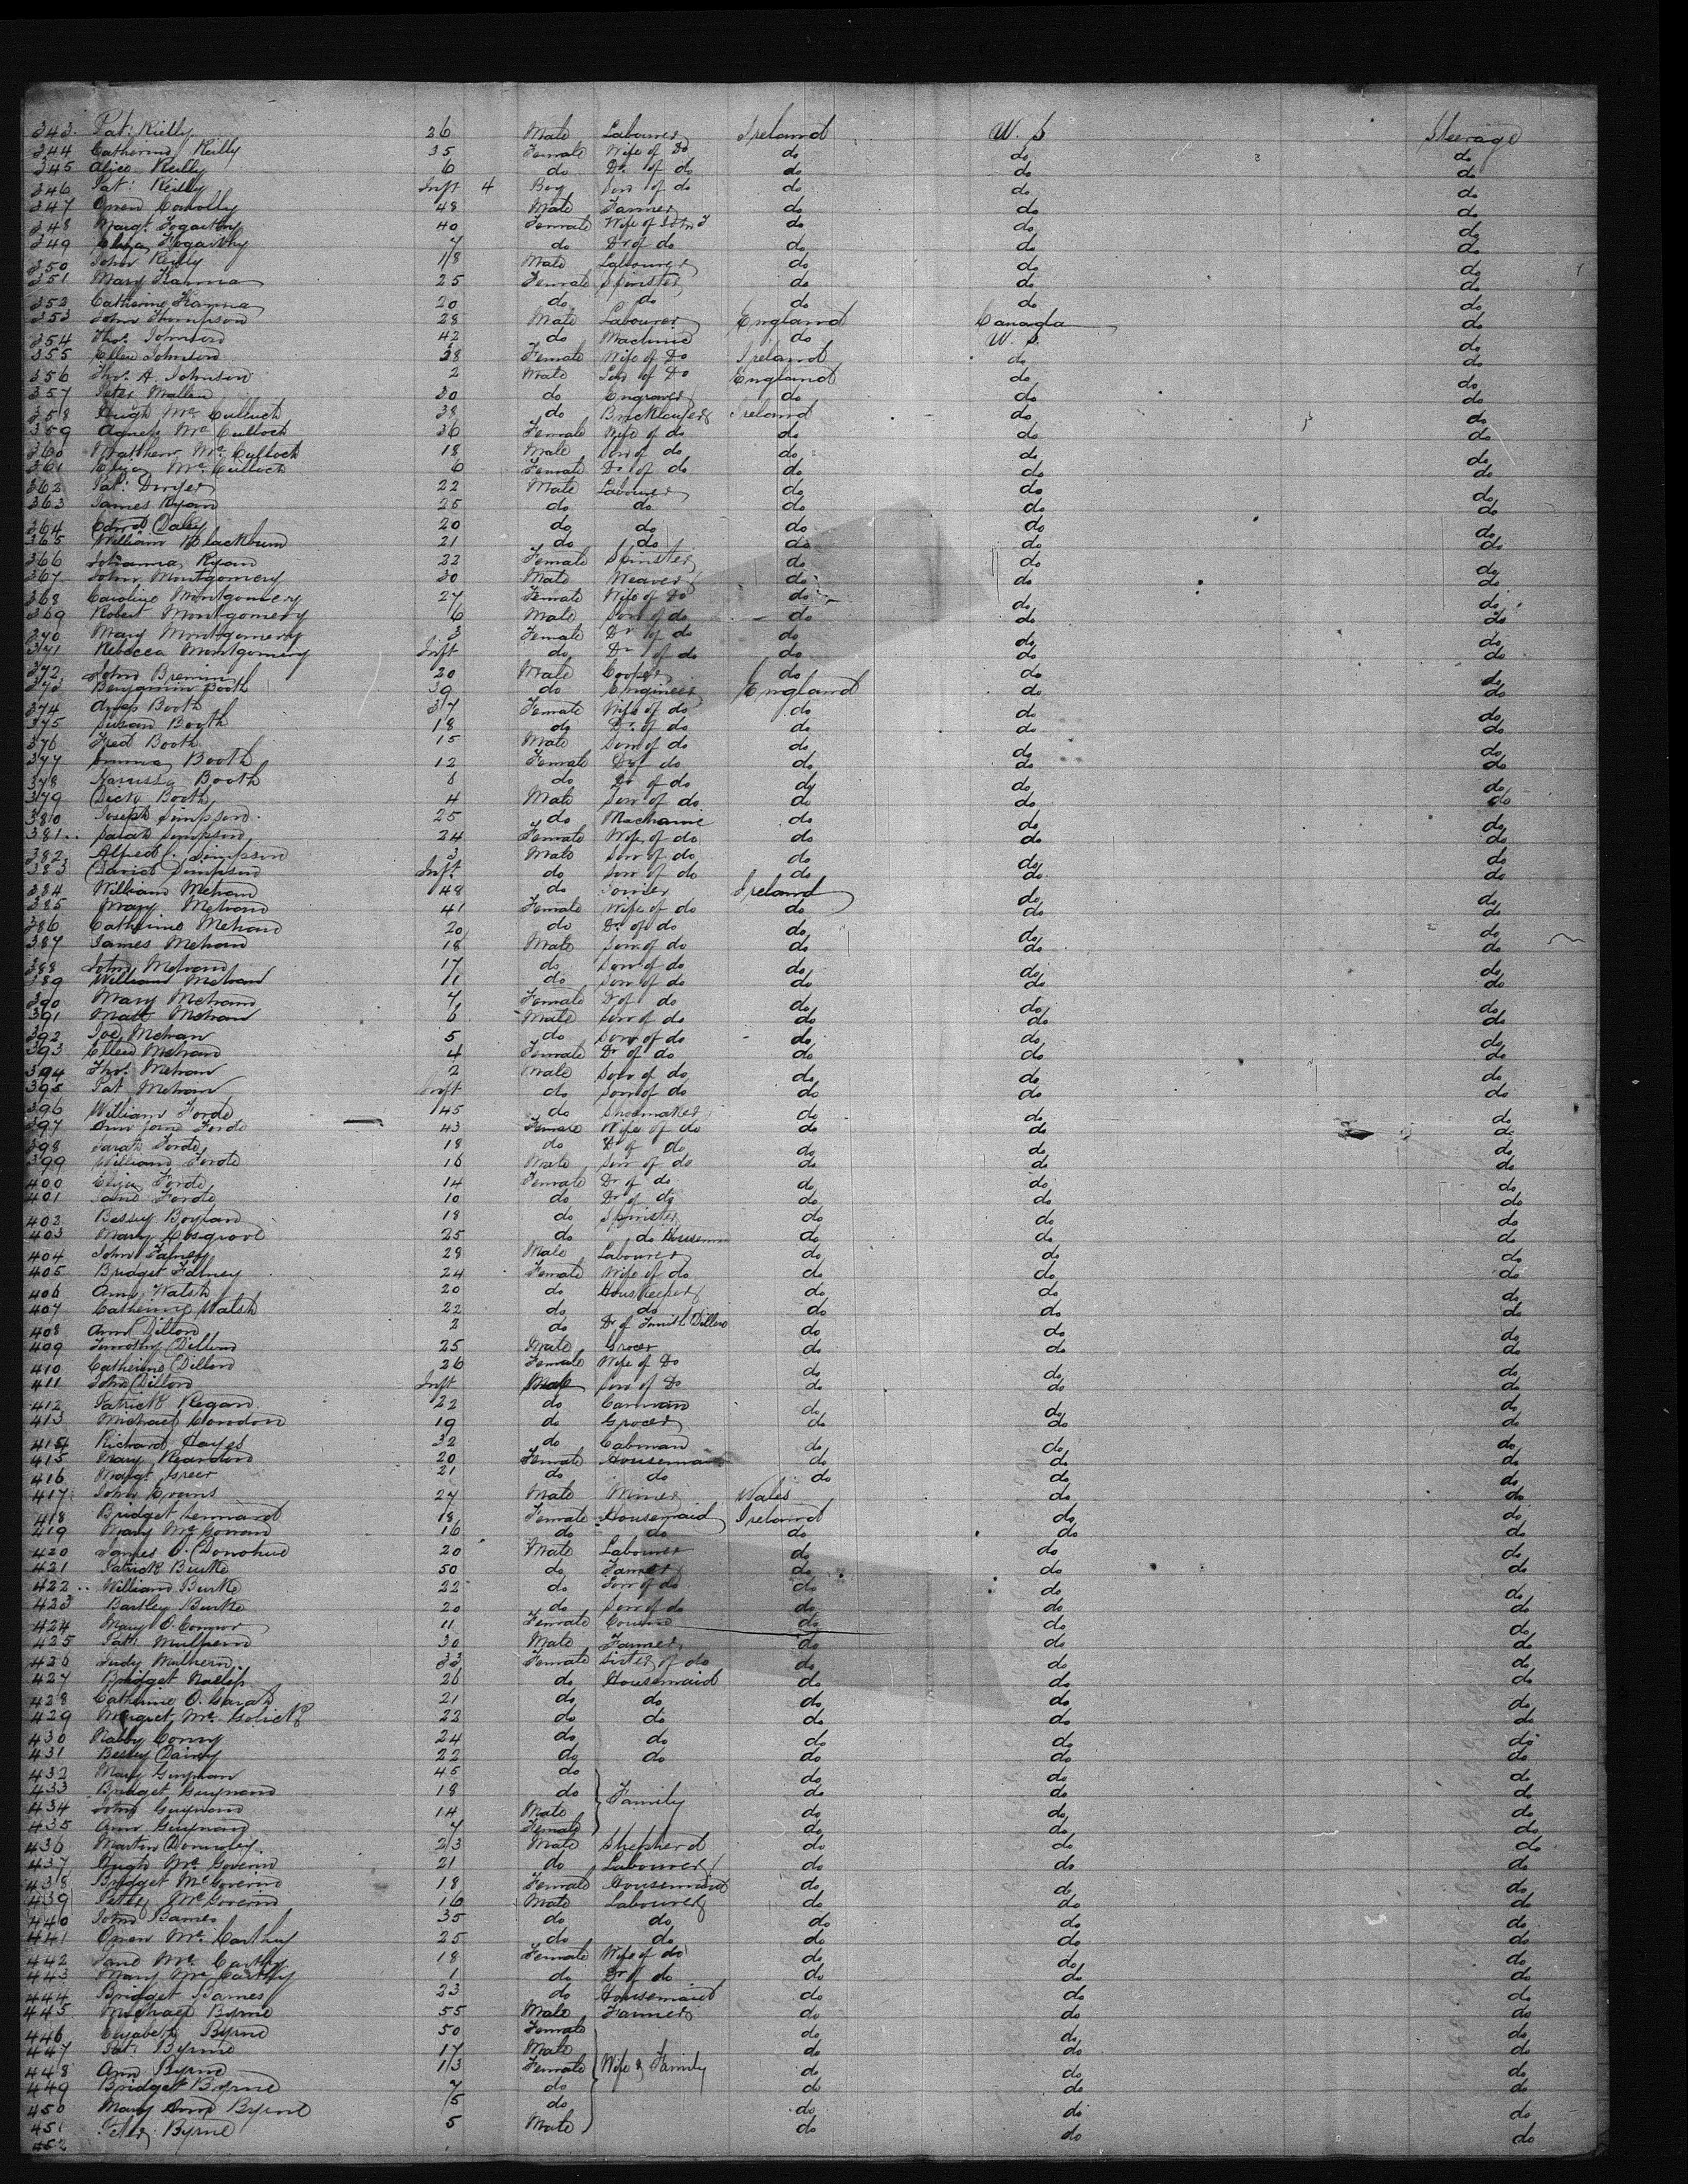 343. Pat: Rielly 36 Male Labourer Ireland U. S Steerage
344 Catherine Reilly 35 Female Wife of Do do do do
345 Alice Reilly 6 do Dr. of do do do do
346 Pat: Reilly Inft 4 Boy Son of do do do do
347 Owen Conolly 48 Male Farmer do do do
348 Margt. Fogarthy 40 Female Wife of do do do
349 Eliza Fogarthy 7 do Dr of do do do do
350 John Reilly 18 Male Labourer do do do
351 Mary Hanna 25 Female Spinster do do do
352 Catherine Hanna 20 do do do do do
353 John Thompson 28 Male Labourer England Canada do
354 Thos. Johnson 42 do do U. S. do
355 Ellen Johnson 38 Female Wife of Do Ireland do do
356 Thos. A. Johnson 2 Male Son of Do England do do
357 Peter Mallen 30 do Engraver do do do
358 Hugh Mc Culloch 38 do Bricklayer Ireland do do
359 Agness Mc Culloch 36 Female Wife of do do do do
360 Matthew Mc Culloch 18 Male Son of do do do do
361 Eliza Mc Culloch 6 Female Dr of do do do do
362 Pat: Dwyer 22 Male Labourer do do do
363 James Ryan 25 do do do do do
364 Edwd Daley 20 do do do do do
365 William Blackburn 21 do do do do do
366 Johanna Ryan 22 Female Spinster do do do
367 John Montgomery 30 Male Weaver do do do
368 Caroline Montgomery 27 Female Wife of Do do do do
369 Robert Montgomery 6 Male Son of do do do do
370 Mary Montgomery 3 Female Dr of do do do do
371 Rebecca Montgomery Inft do Dr of do do do do
372 John Bremin 20 Male Cooper do do do
373 Benjamin Booth 39 do Engineer England do do
374 Booth 37 Female Wife of do do do do
375 Susan Booth 18 do Dr. of do do do do
376 Fred Booth 15 Male Son of do do do do
377 Emma Booth 12 Female Dr of do do do do
378 Booth 6 do Dr of do do do do
379 Dick Booth 4 Male Son of do do do do
380 Joseph Simpson 25 do Mechanic do do do
381 Sarah Simpson 24 Female Wife of do do do do
382 Alfred C. Simpson 3 Male Son of do do do do
383 David Simpson Inft. do Son of do do do do
384 William Mehan 48 do Joiner Ireland do do
385 Mary Mehan 41 Female Wife of do do do do
386 Catherine Mehan 20 do Dr of do do do do
387 James Mehan 18 Male Son of do do do do
388 John Mehan 17 do Son of do do do do
389 William Mehan 11 do Son of do do do do
390 Mary Mehan 7 Female Dr of do do do do
391 Matt Mehan 6 Male Son of do do do do
392 Joe Mehan 5 do Son of do do do do
393 Ellen Mehan 4 Female Dr of do do do do
394 Thos. Mehan 2 Male Son of do do do do
395 Pat Mehan Inft do Son of do do do do
396 William Forde 45 do Shoemaker do do do
397 Ann Jane Forde 43 Female Wife of do do do do
398 Sarah Forde 18 do Dr of do do do do
399 William Forde 16 Male Son of do do do do
400 Eliza Forde 14 Female Dr of do do do do
401 Jane Forde 10 do Dr of do do do do
402 Bessy Boylan 18 do Spinster do do do
403 Mary Cosgrove 25 do do do do do
404 John Falney 28 Male Labourer do do do
405 Bridget Falney 24 Female Wife of do do do do
406 Ann Walsh 20 do Houskeeper do do do
407 Catherine Walsh 22 do do do do do
408 Ann Dillon 2 do Dr of Dillon do do do
409 Timothy Dillon 25 Male Grocer do do do
410 Catherine Dillon 26 Female Wife of Do do do do
411 John Dillon Inft Male Son of Do do do do
412 Patrick Regan 22 do Carman do do do
413 Michael Condon 19 do Grocer do do do
414 Richard Hayes 32 do Cabman do do do
415 Mary Reardon 20 Female Housemaid do do do
416 Margt Greer 21 do do do do do
417 John Evans 27 Male Miner Wales do do
418 Bridget Lennard 18 Female Housemaid Ireland do do
419 Mary Mc Gowan 16 do do do do do
420 James O. Donohue 20 Male Labourer do do do
421 Patrick Burke 50 do Farmer do do do
422 William Burke 22 do Son of do do do do
423 Bartley Burke 20 do Son of do do do do
424 Mary O. Connor 11 Female Cousin do do do
425 Pat: Mulhern 30 Male Farmer do do do
426 Judy Mulhern 33 Female Sister of do do do do
427 Bridget 26 do Housemaid do do do
428 Catherine O. Garah 21 do do do do do
429 Margret Mc Golick 22 do do do do do
430 Conny 24 do do do do do
431 Bessy Dainy 22 do do do do do
432 Mary Guynan 45 do do do do
433 Bridget Guynan 18 do Family do do do
434 John Guynan 14 Male do do do
435 Ann Guynan 7 Female do do do
436 Martin Donnoley 23 Male Shepherd do do do
437 Hugh Mc Goverin 21 do Labourer do do do
438 Bridget Mc Goverin 18 Female Housemaid do do do
439 Peter Mc Goverin 16 Male Labourer do do do
440 John Barnes 35 do do do do do
441 Owen Mc. Carthy 25 do do do do do
442 Jane Mc Carthy 18 Female Wife of do do do do
443 Mary Mc Carthy 1 do Dr of do do do do
444 Bridget Barnes 23 do Housemaid do do do
445 Michael Byrne 55 Male Farmer do do do
446 Elizabeth Byrne 50 Female do do do
447 Pat: Byrne 17 Male do do do
448 Ann Byrne 13 Female Wife & Family do do do
449 Bridget Byrne 7 do do do do
450 Mary Ann Byrne 5 do do do do
451 Peter Byrne 5 Male do do do
452